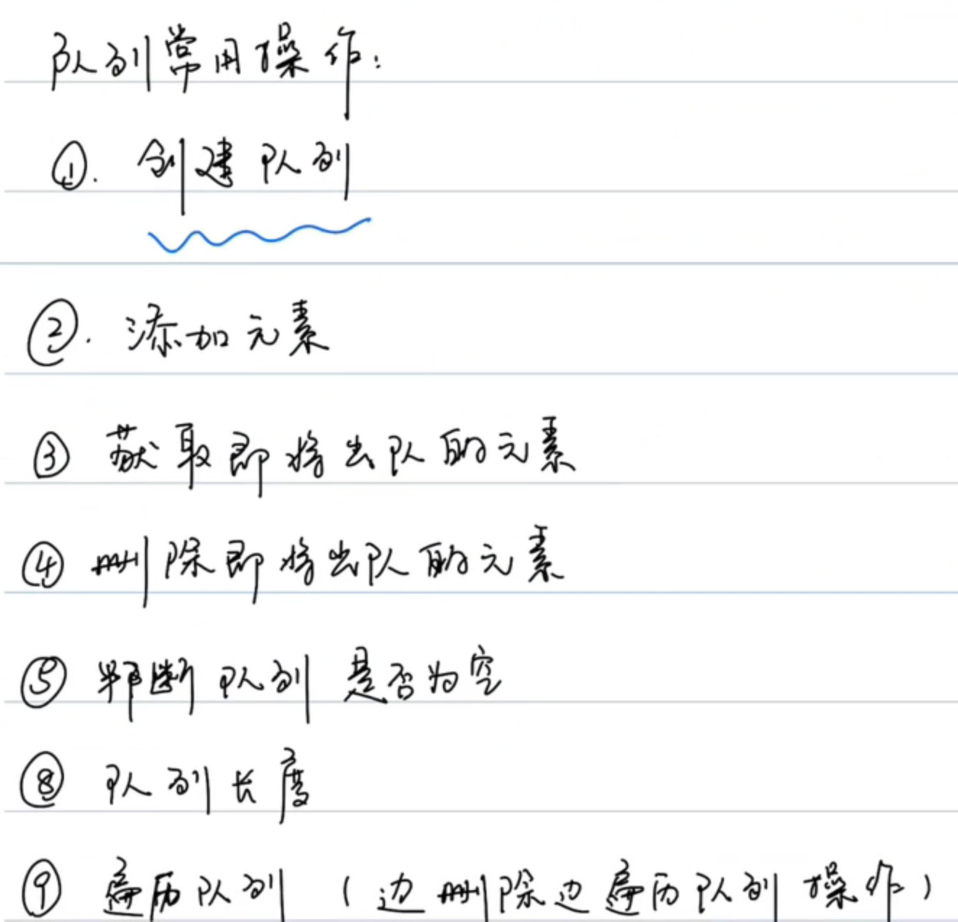 队列常用操作:
①. 创建队列
②. 添加元素
③ 获取即将出队的元素
④ 删除即将出队的元素
⑤ 判断队列是否为空
⑧ 队列长度
⑨ 遍历队列 (边删除边遍历队列操作)